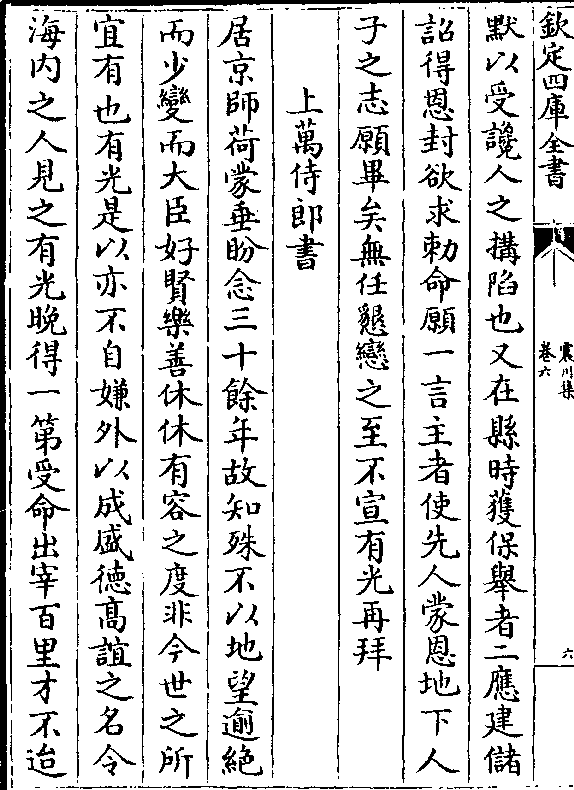 欽定四庫全書
震川集
卷六
六
默以受讒人之搆陷也又在縣時獲保舉者二應建儲
詔得恩封欲求勑命願一言主者使先人蒙恩地下人
子之志願畢矣無任懇戀之至不宣有光再拜
上萬侍郎書
居京師荷蒙垂盼念三十餘年故知殊不以地望逾絶
而少變而大臣好賢樂善休休有容之度非今世之所
宜有也有光是以亦不自嫌外以成盛徳髙誼之名令
海内之人見之有光晚得一第受命出宰百里才不迨